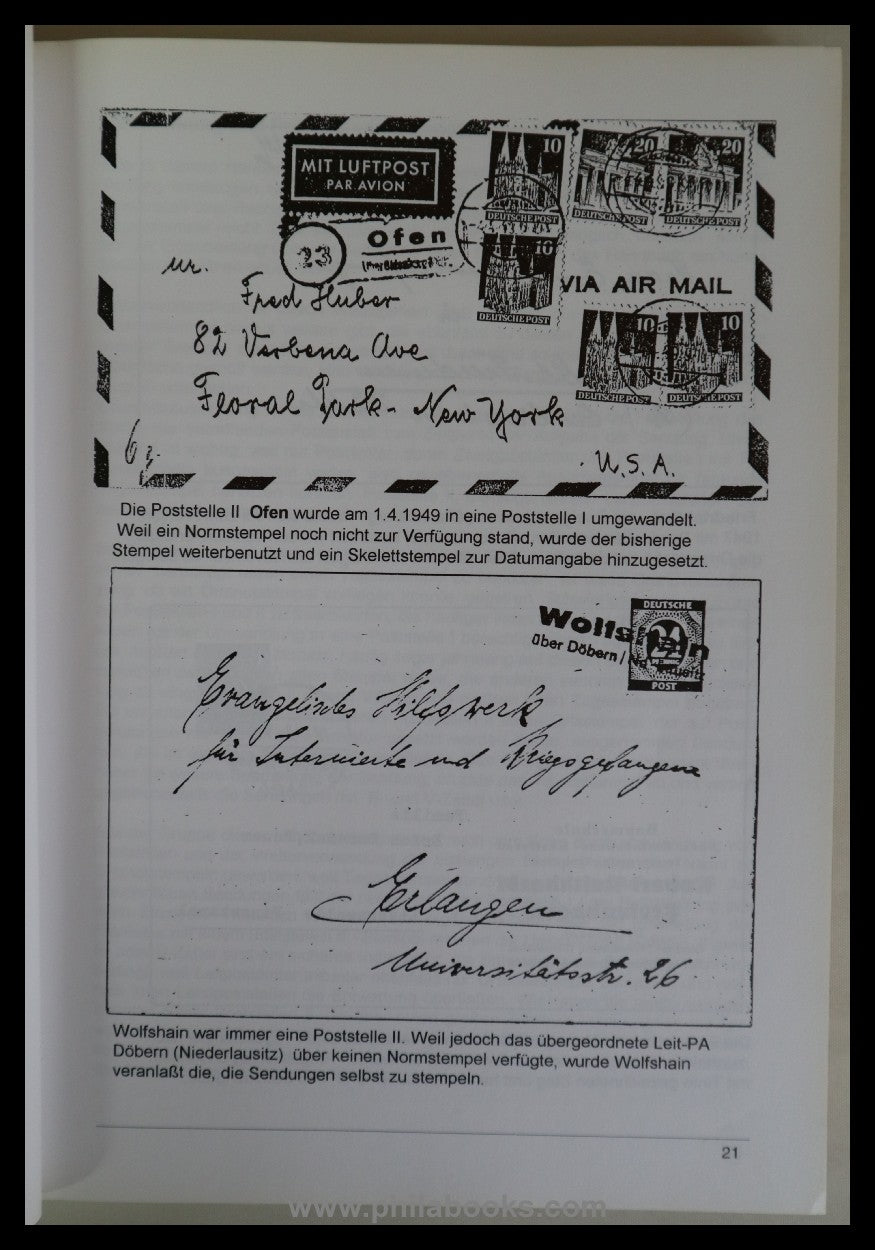 MIT LUFTPOST
PAR AVION
10
20
20
DEUTSCHE POST
DEUTSCHE POST
DEUTSCHE POST
23
Ofen
10
DEUTSCHE POST
VIA AIR MAIL
Mr.
Fred Huber
82 Verbena Ave
Floral Park - New York
U.S.A.
10
10
DEUTSCHE POST
DEUTSCHE POST
Die Poststelle II Ofen wurde am 1.4.1949 in eine Poststelle I umgewandelt.
Weil ein Normstempel noch nicht zur Verfügung stand, wurde der bisherige
Stempel weiterbenutzt und ein Skelettstempel zur Datumangabe hinzugesetzt.
DEUTSCHE
24
PFENNIG
POST
Wolfshain
über Döbern / Nd.
Evangelisches Hilfswerk
für Internierte und Kriegsgefangene
Erlangen
Universitätsstr. 26
Wolfshain war immer eine Poststelle II. Weil jedoch das übergeordnete Leit-PA
Döbern (Niederlausitz) über keinen Normstempel verfügte, wurde Wolfshain
veranlaßt die, die Sendungen selbst zu stempeln.
21
www.philabooks.com